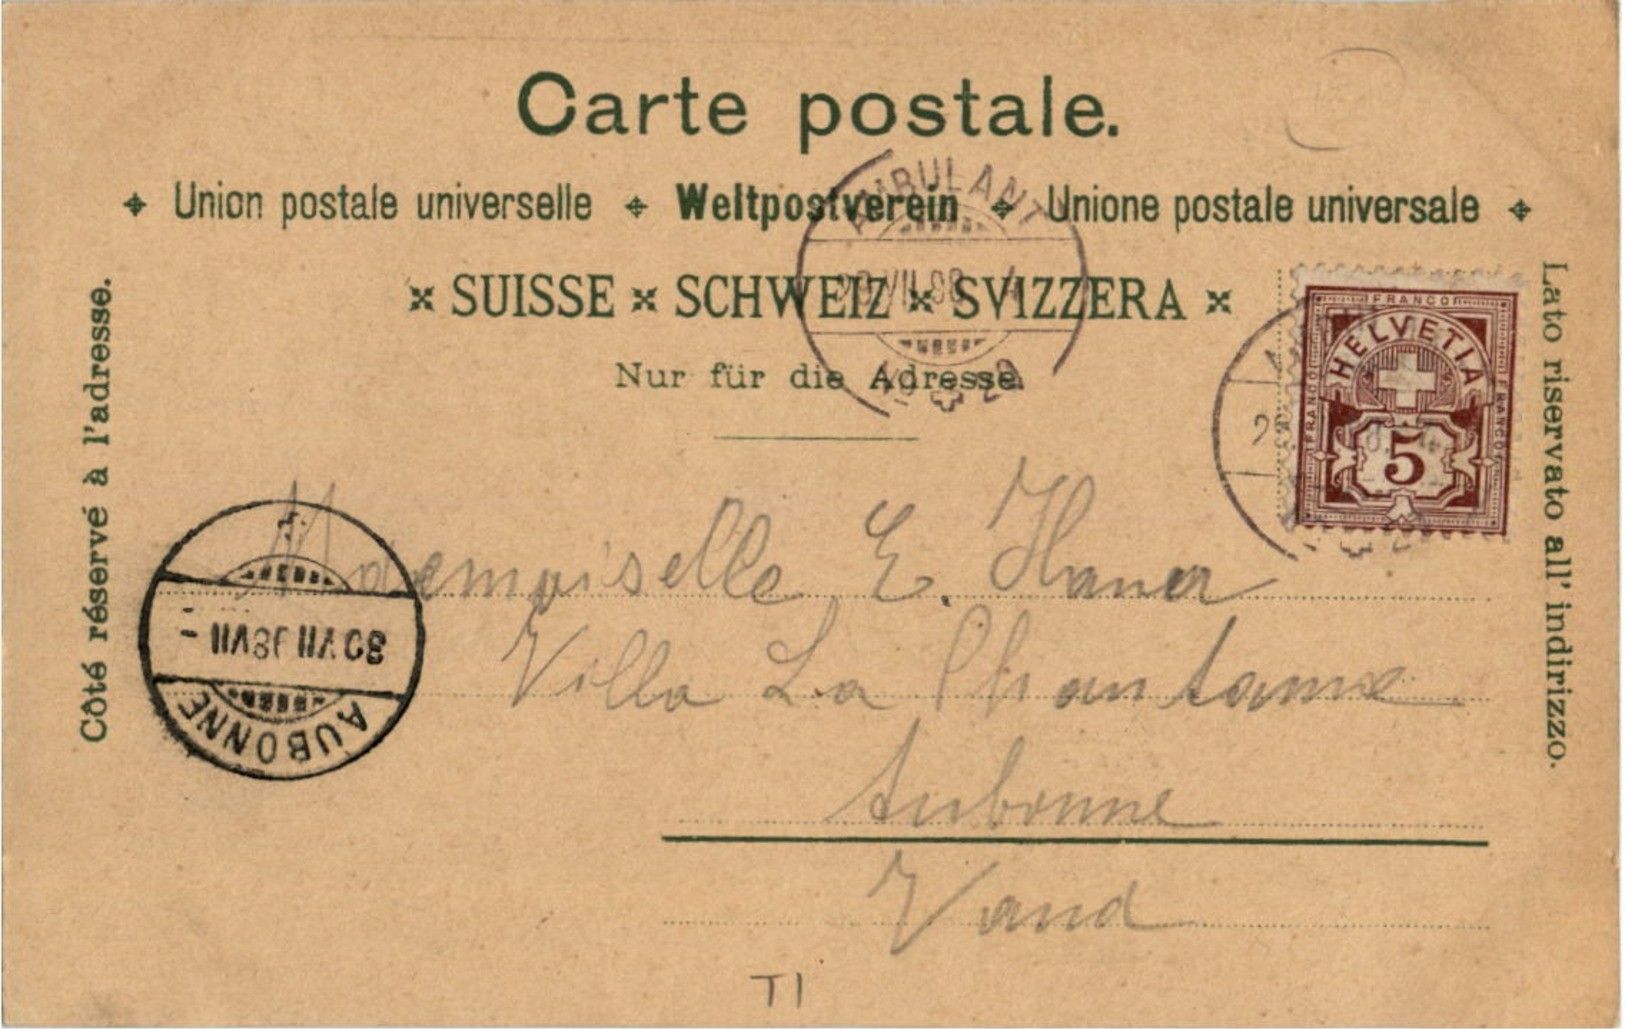 Carte postale.
Union postale universelle Weltpostverein Unione postale universale
SUISSE SCHWEIZ SVIZZERA
Nur für die Adresse.
Côté réservé à l'adresse.
Lato riservato all' indirizzo.
AMBULANT
29 VII 98
FRANCO
FRANCO
FRANCO
HELVETIA
5
AUBONNE
Mademoiselle E.
Villa La
Aubonne
Vaud
TI